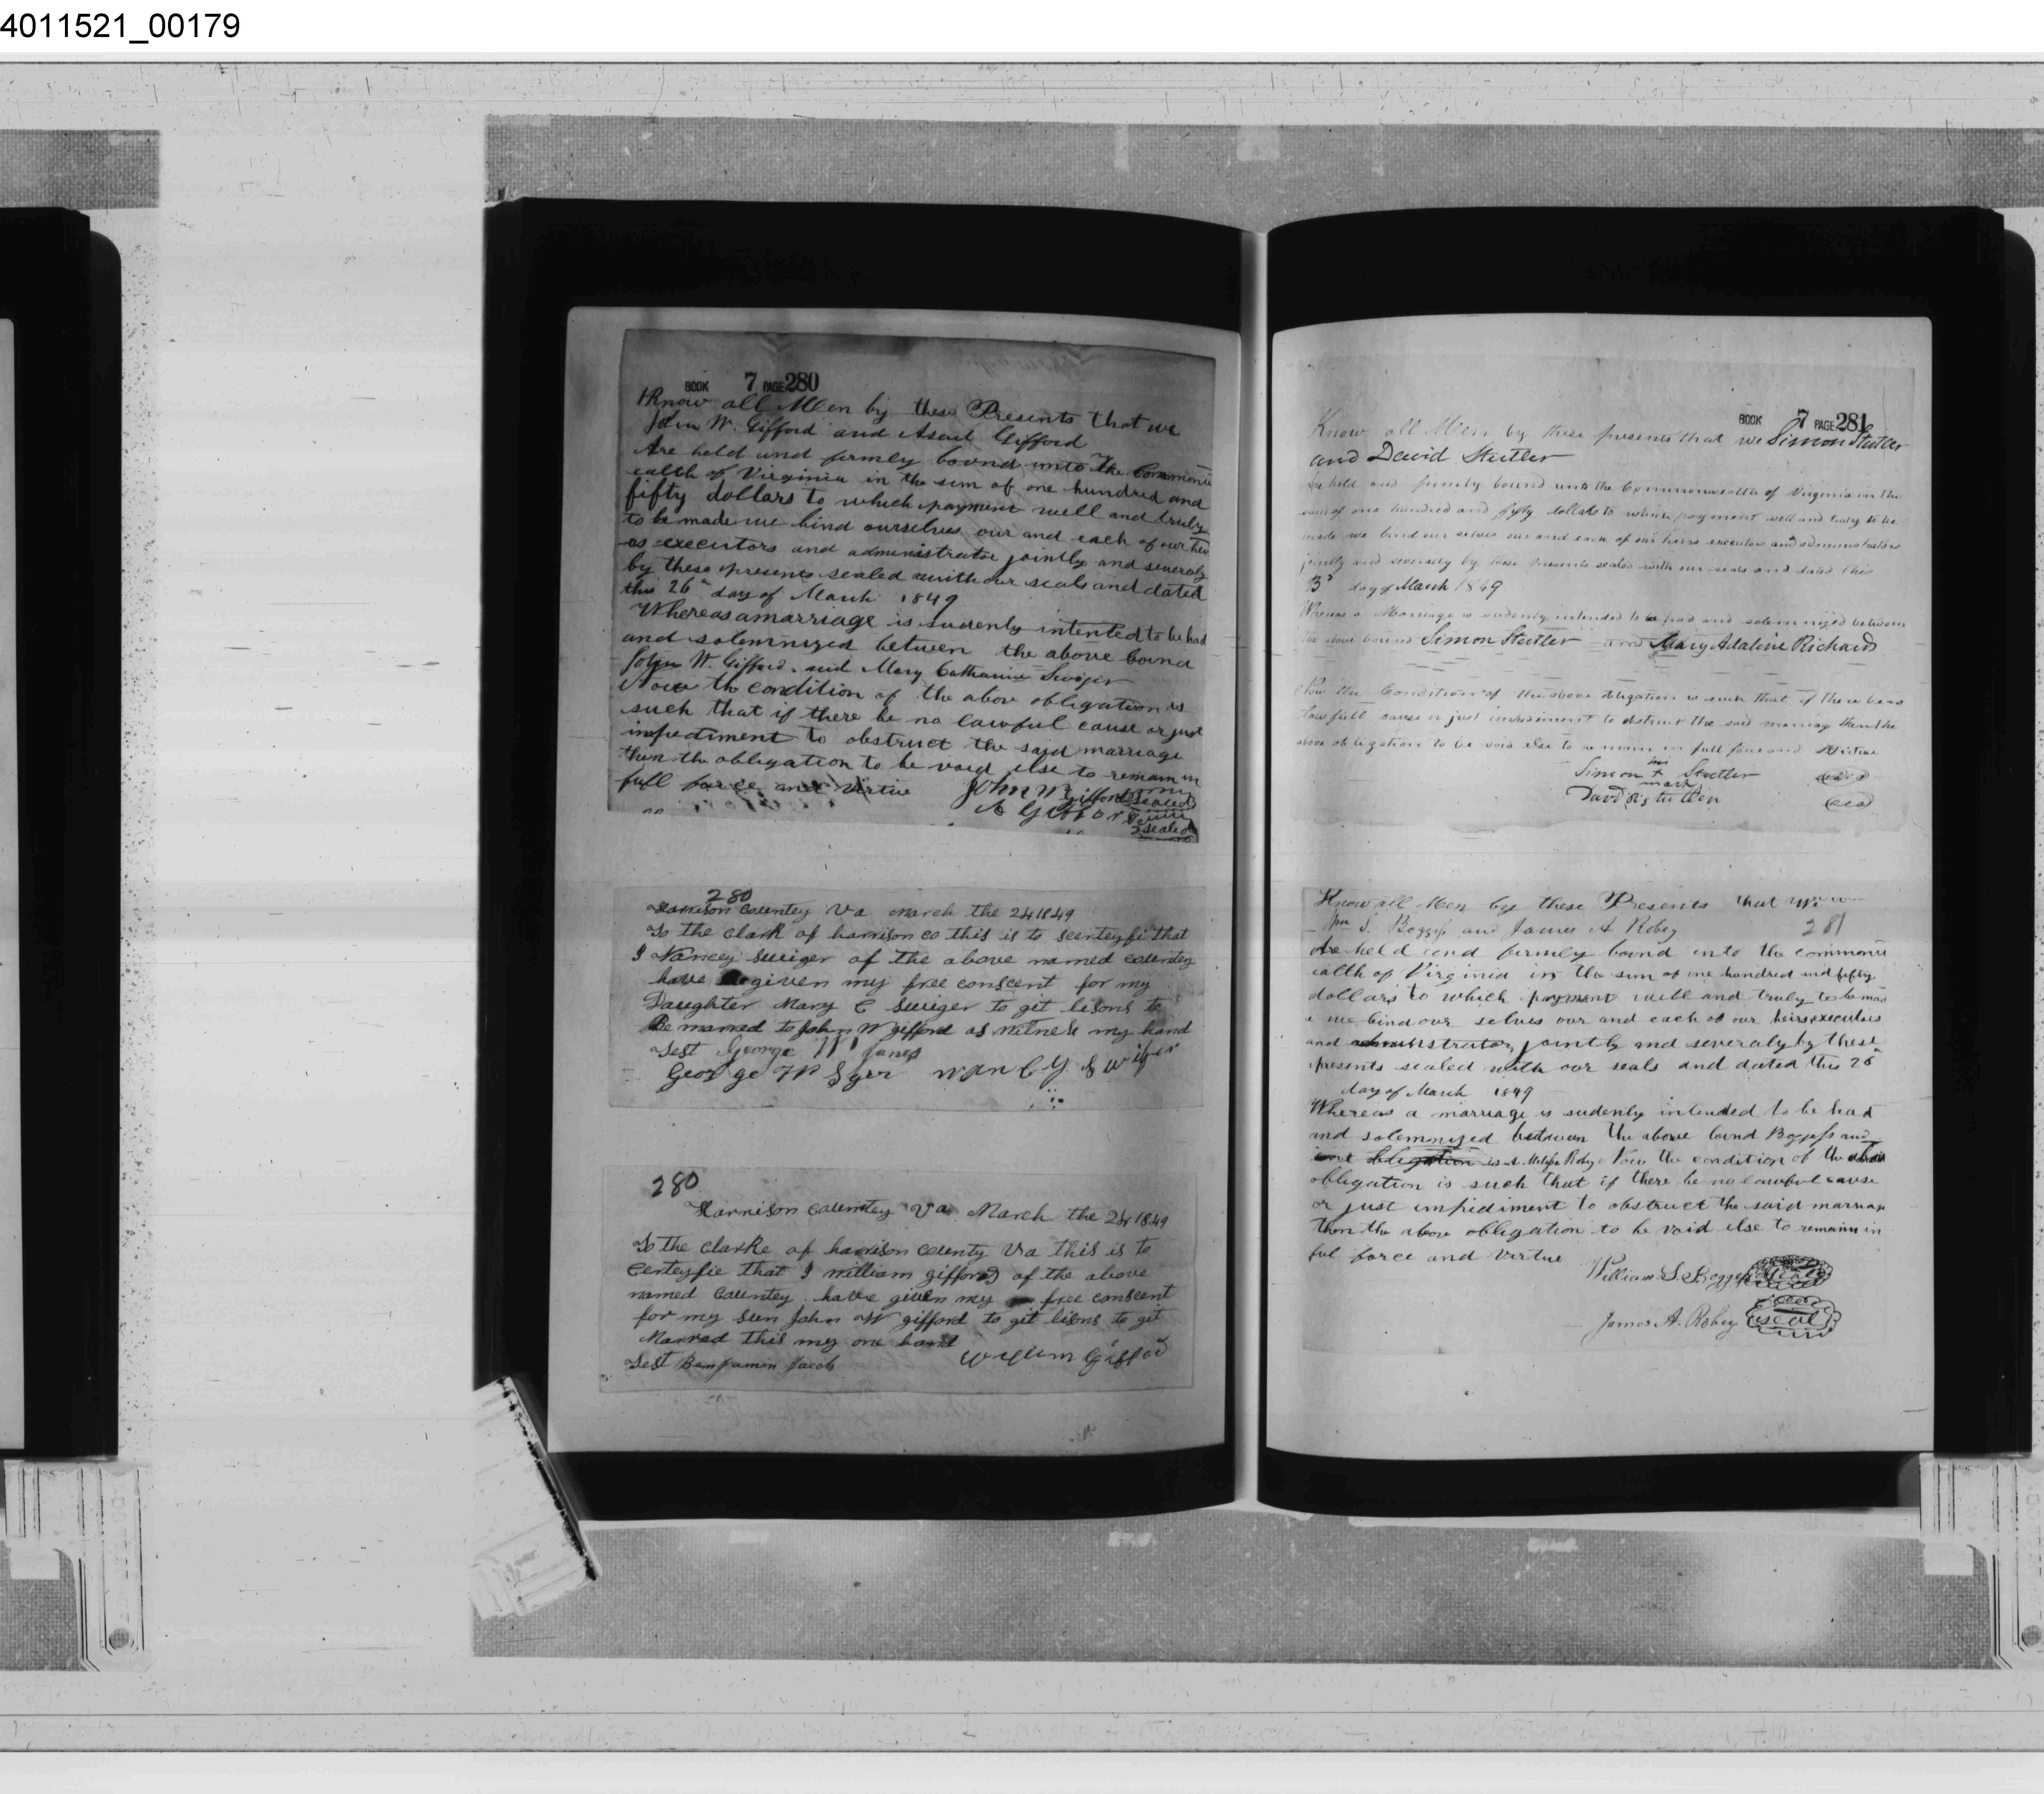 4011521_00179
BOOK 7 PAGE 280
Know all Men by these Presents that we
John W. Gifford and Asael Gifford
Are held and firmly bound unto The Commonw
ealth of Virginia in the sum of one hundred and
fifty dollars to which payment well and truly
to be made we bind ourselves our and each of our heir
os executors and administrator jointly and severaly
by these presents sealed with our seals and dated
this 26th day of March 1849
Whereas a marriage is sudenly intented to be had
and solemnized between the above bound
John W. Gifford and Mary Catharine Swiger
Now the condition of the above obligation is
such that if there be no lawful cause or just
impediment to obstruct the said marriage
then the obligation to be void else to remain in
full force and virtue John W Gifford sealed
A Gifford sealed
280
Harrison Countey Va March the 24 1849
To the Clark of harrison co this is to scerteyfi that
I Nancey Swiger of the above named countey
have given my free conscent for my
Daughter Mary C Swiger to git lisons to
Be married to John W gifford as witness my hand
Test George W Janes
George W Syer Nancy Swiger
280
Harrison Countey Va March the 24 1849
To the Clarke of harrison County Va this is to
Certeyfie that I william gifford of the above
named Countey have given my free conscent
for my sun John W gifford to git lisons to git
Marrad this my one hand
Test Bemjamin Jacob Wyllum Giffod
BOOK 7 PAGE 281
Know all Men by these presents that we Simon Stutler
and David Stutler
are held and firmly bound unto the Commonwealth of Virginia in the
sum of one hundred and fifty dollars to which payment well and truly to be
made we bind our selves our and each of our heirs executors and administrators
jointly and severely by these presents sealed with our seals and dated this
3d day of March 1849
Whereas a Marriage is sudenly intended to be had and solemnized between
the above bound Simon Stutler and Mary Adaline Richard
Now the Condition of the above obligation is such that if there be no
lawfull cause or just impediment to obstruct the said marriag then the
above obligation to be void else to remain in full force and Virtue
Simon his + mark Stutler seal
David Stutler seal
Know all Men by these Presents that we
Wm S. Boggess and James A Robey 281
Are held and firmly bound unto the commonw
ealth of Virginia in the sum of one hundred and fifty
dollars to which payment will and truly to be mad
e we bind our selves our and each of our heirs executors
and administrator jointly and severaly by these
presents sealed with our seals and dated this 26th
day of March 1849
Whereas a marriage is sudenly intended to be had
and solemnized between the above bound Boggess and
obligation Robey Now the condition of the above
obligation is such that if there be no lawful cause
or just impediment to obstruct the said marriag
then the above obligation to be void else to remain in
ful force and virtue
William S. Boggess seal
James A. Robey seal